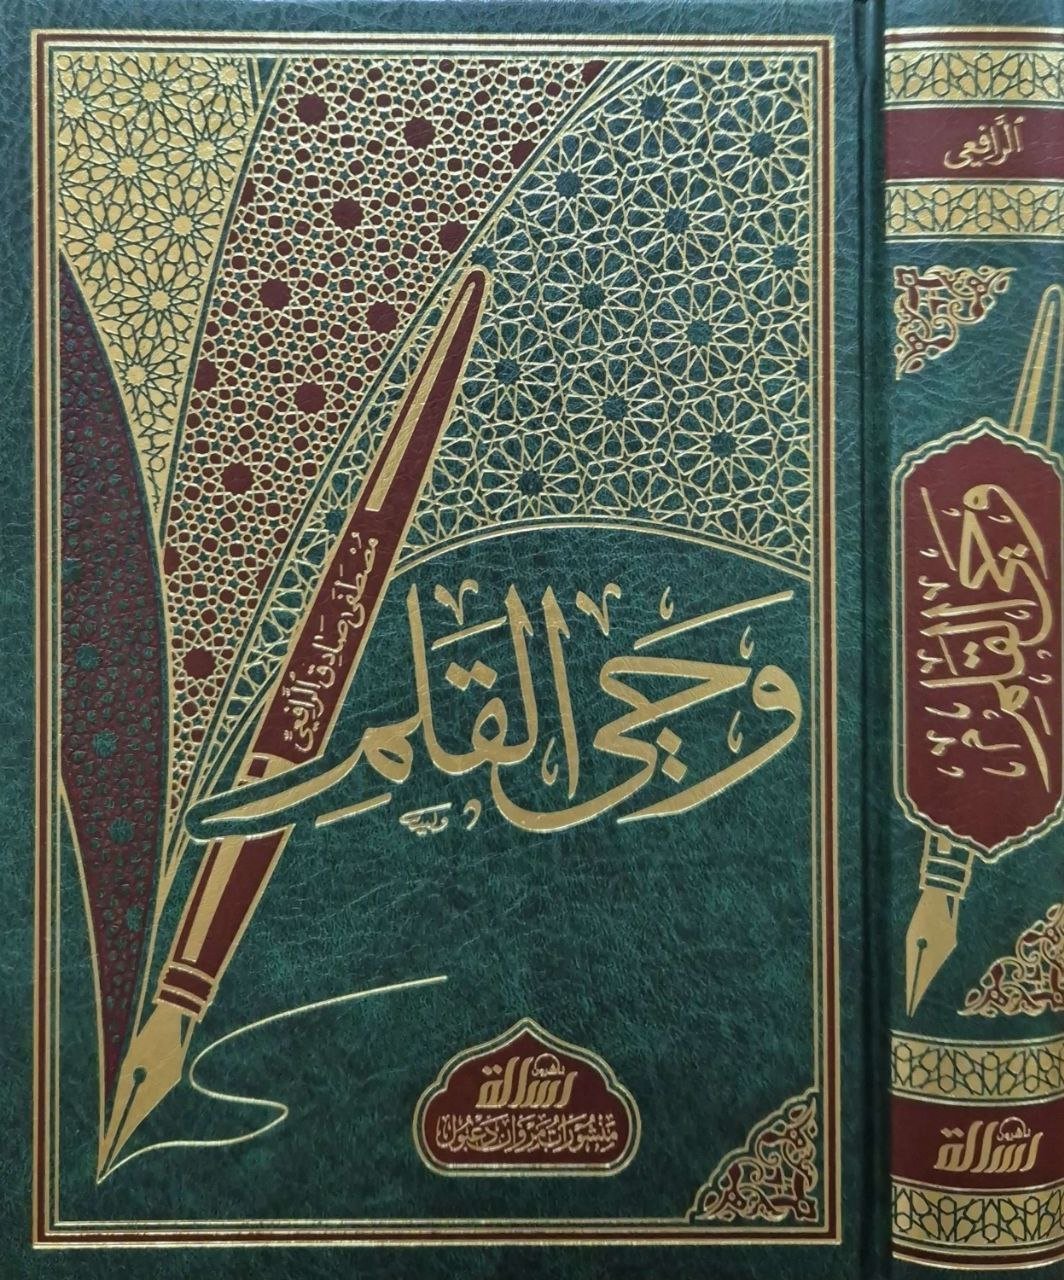 مُصْطَفَى صَادِق الرَّافِعِيّ
وَحْيُ القَلَمِ
وليد
ناشرون
رسالة
منشورات مروان دعبول
الرَّافِعِي
وَحْيُ القَلَمِ
ناشرون
رسالة